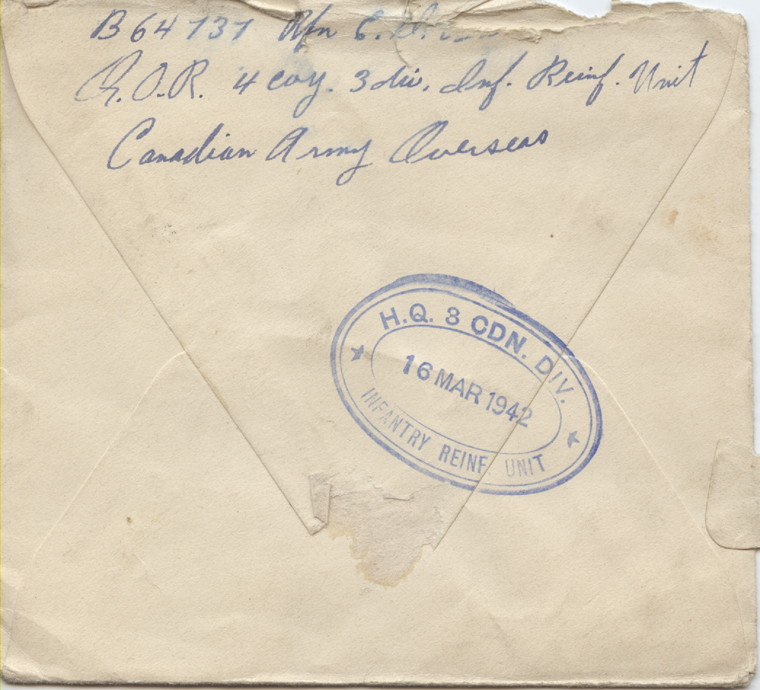 B64737 Rfn
Q.O.R. 4 coy. 3 div. Inf. Reinf. Unit
Canadian Army Overseas
H.Q. 3 CDN. DIV.
16 MAR 1942
INFANTRY REINF UNIT